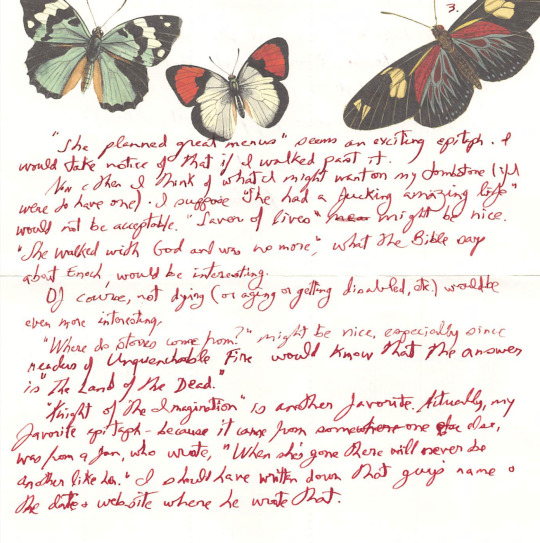 3.
"She planned great menus" seems an exciting epitaph. I
would take notice of that if I walked past it.
Now & then I think of what I might want on my tombstone (if I
were to have one). I suppose "She had a fucking amazing life"
would not be acceptable. "Savor of lives" might be nice.
"She walked with God and was no more," what the Bible say
about Enoch, would be interesting.
Of course, not dying (or aging or getting disabled, etc.) would be
even more interesting.
"Where do stories come from?" might be nice, especially since
readers of Unquenchable Fire would know that the answer
is "The Land of the Dead."
"Knight of the Imagination" is another favorite. Actually, my
favorite epitaph - because it came from someone else,
was from a fan, who wrote, "When she's gone there will never be
another like her." I should have written down that guy's name &
the date & website where he wrote that.